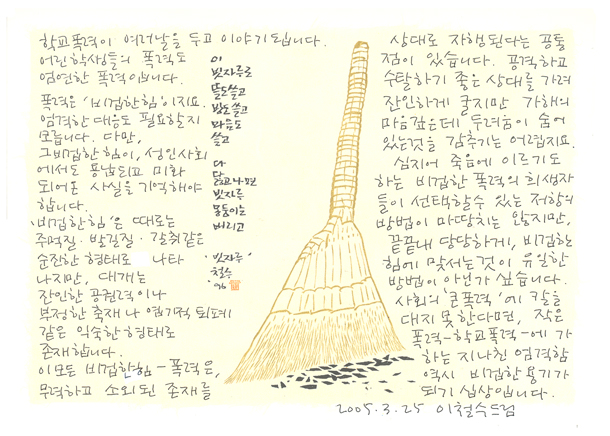 학교폭력이 여러날을 두고 이야기 됩니다.
어린학생들의 폭력도
엄연한 폭력입니다.
폭력은 '비겁한 힘'이지요.
엄격한 대응도 필요할지
모릅니다. 다만,
그 비겁한 힘이, 성인사회
에서도 용납되고 미화
되어온 사실을 기억해야
합니다.
'비겁한 힘'은 때로는
주먹질·발길질·갈취같은
순전한 형태로 나타
나지만, 대개는
잔인한 공권력이나
부정한 축재나 엽기적 퇴폐
같은 익숙한 형태로
존재합니다.
이 모든 비겁한 힘-폭력은,
무력하고 소외된 존재를
이
빗자루로
뜰도 쓸고
방도 쓸고
마음도
쓸고
다
닳고 나면
빗자루
몽둥이는
버리고
'빗자루'
철수
'96
상대로 자행된다는 공통
점이 있습니다. 공격하고
수탈하기 좋은 상대를 가려
잔인하게 굴지만 가해의
마음 깊은데 두려움이 숨어
있는것을 감추기는 어렵지요.
심지어 죽음에 이르기도
하는 비겁한 폭력의 희생자
들이 선택할수 있는 저항의
방법이 마땅치는 않지만,
끝끝내 당당하게, 비겁한
힘에 맞서는것이 유일한
방법이 아닌가 싶습니다.
사회의 '큰폭력'에 칼을
대지 못한다면, 작은
폭력-학교폭력-에 가
하는 지나친 엄격함
역시 비겁한 용기가
되기 십상입니다.
2005.3.25 이철수드림